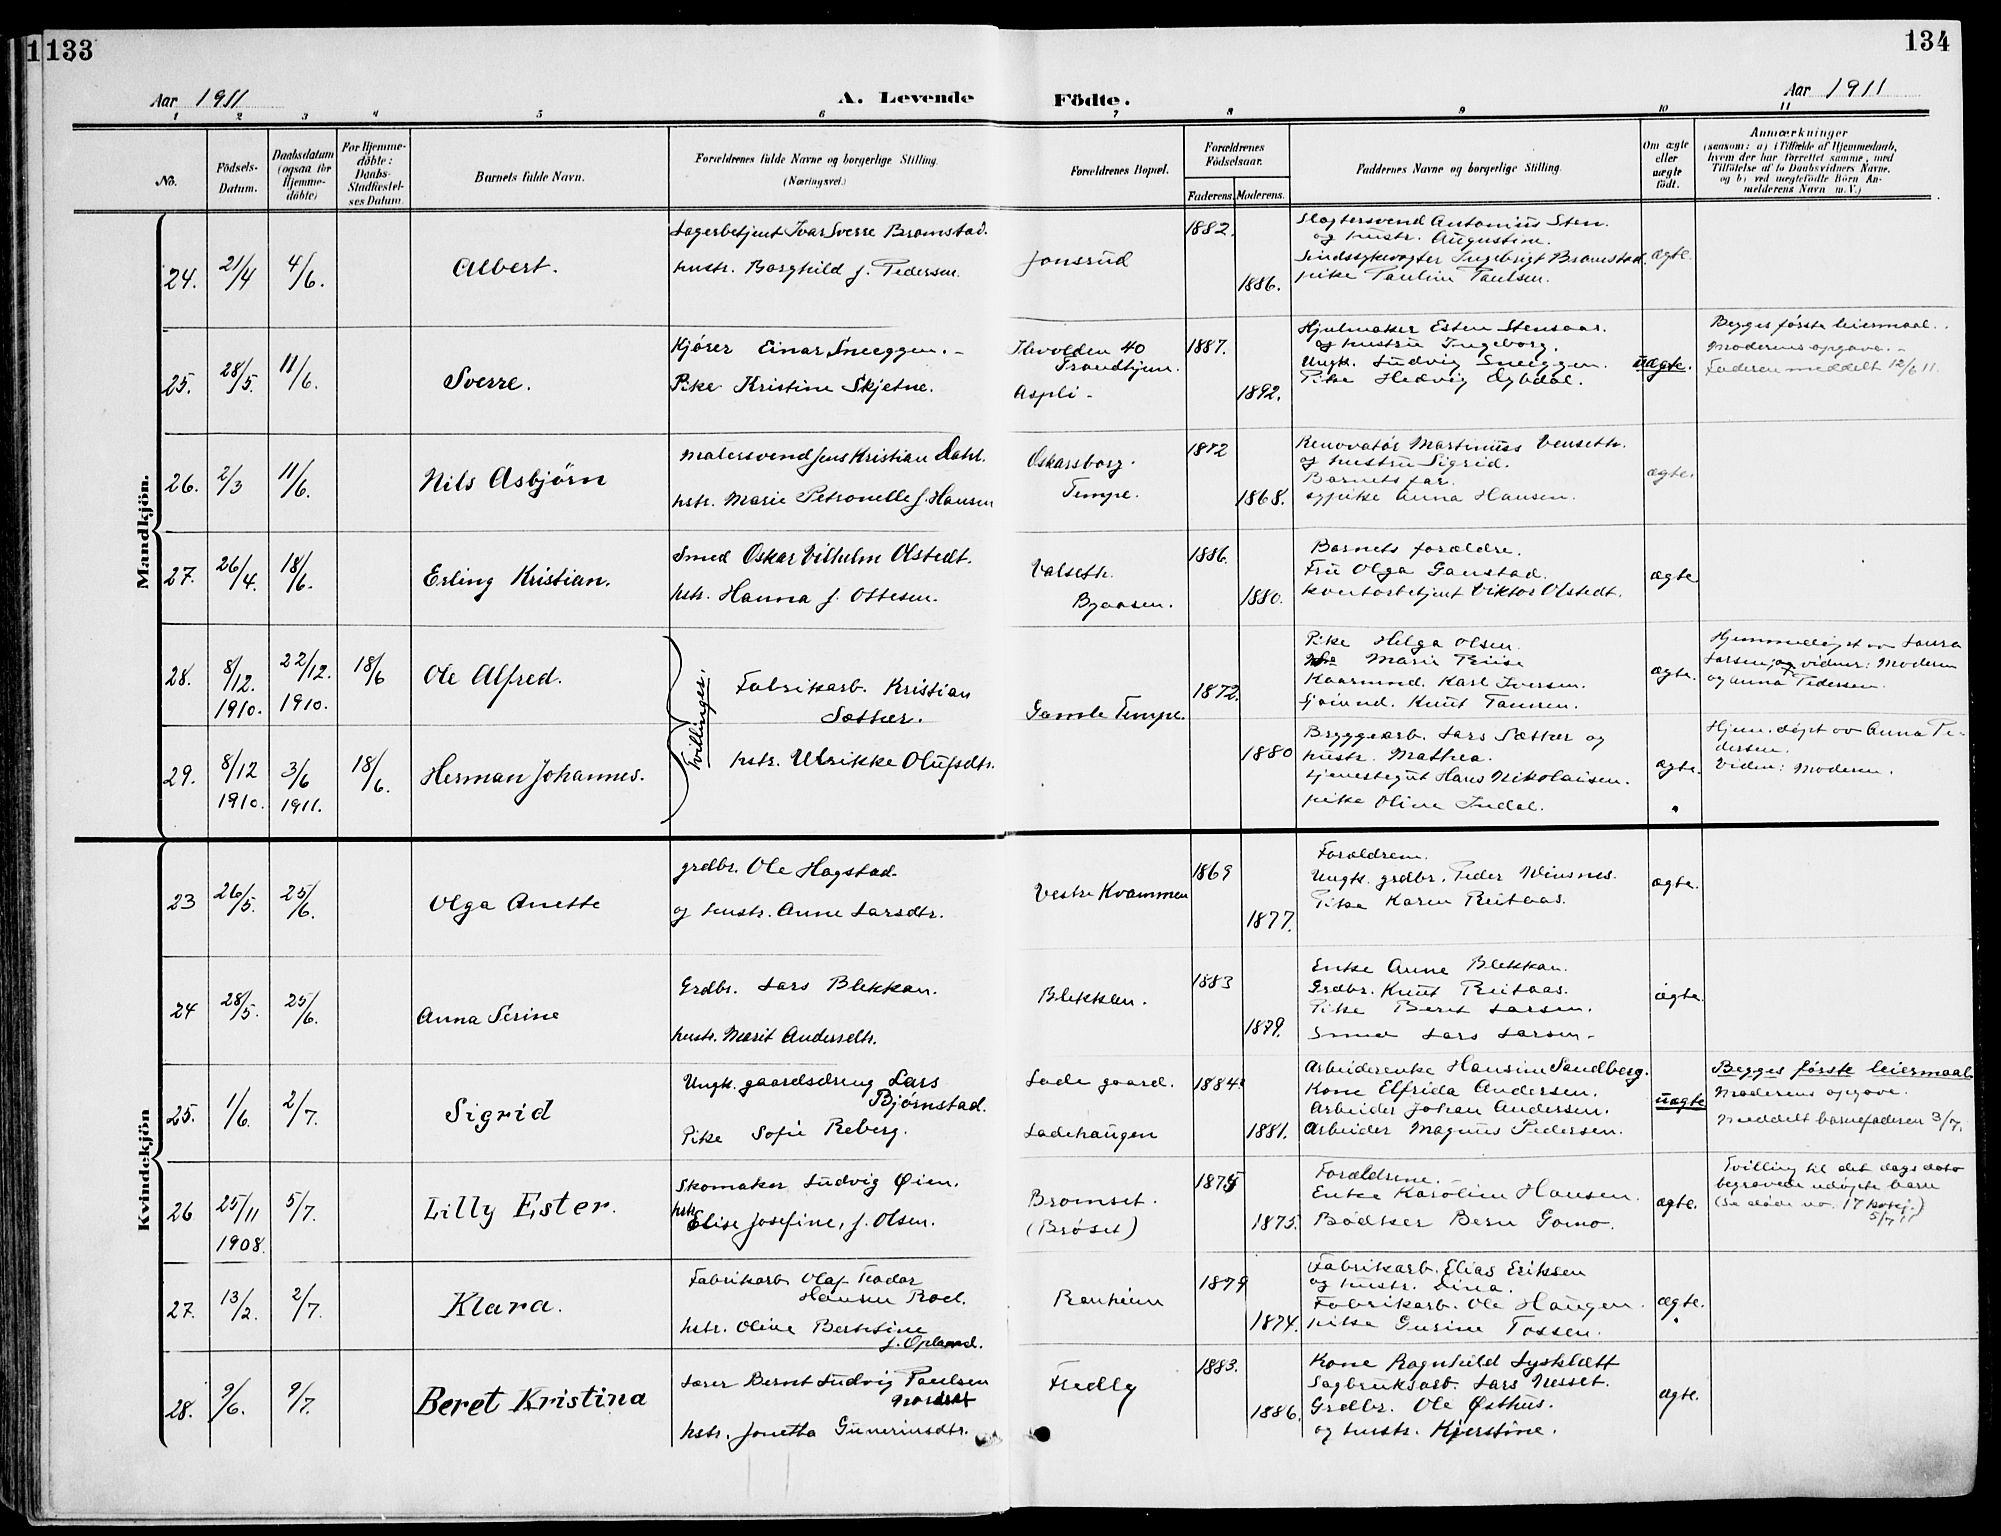 133
134
Aar 1911
A. Levende Födte.
Aar 1911
1 2 3 4 5 6 7 8 9 10 11
No.
Födsels-Datum.
Daabsdatum (ogsaa for Hjemme-döbte)
For Hjemme-döbte: Daabs-Stadfæstel-ses Datum.
Barnets fulde Navn.
Forældrenes fulde Navne og borgerlige Stilling. (Næringsvei.)
Forældrenes Bopæl.
Forældrenes Födselsaar.
Faderens. Moderens.
Faddernes Navne og borgerlige Stilling.
Om ægte eller uægte födt.
Anmærkninger
(saasom: a) i Tilfælde af Hjemmedaab,
hvem der har forrettet samme, med
Tilföielse af to Daabsvidners Navne.
og b) ved uægtefödte Börn An-
melderens Navn m. V.)
Mandkjön.
24. 21/4 4/6. Albert.
Lagerbetjent Ivar Sverre Bromstad.
hustr. Borghild f. Pedersen.
Jonsrud
1882.
1886.
Slagtersvend Antonius Sten.
og hustr. Augustine.
Sindssykevogter Ingebrigt Bromstad.
pike Pauline Paulsen.
ægte.
25. 28/5. 11/6. Sverre.
Kjører Einar Sneeggen.
Pike Kristine Skjetne.
Ilevolden 40
Trondhjem.
Aspli -
1887.
1892.
Hjulmaker Esten Stensaas.
og hustru Ingeborg.
Ungk. Ludvig Sneeggen.
Pike Hedvig Digbdal.
uægte.
Begges første leiermaal.
Moderens opgave. -
Faderen meddelt 12/6 11.
26. 2/3 11/6. Nils Asbjörn
Malersvend Jens Kristian Dahl.
hstr. Marie Petronelle f. Hansen
Oskarsborg.
Tempe.
1872
1868.
Renovatør Martinus Venseth.
og hustru Sigrid.
Barnets far.
sypike Anna Hansen.
ægte.
27. 26/4. 18/6. Erling Kristian.
Smed Oskar Vilhelm Olstedt.
hstr. Hanna f. Ottesen.
Valseth.
Byaasen.
1886.
1880.
Barnets forældre.
Fru Olga Ganstad.
Kontorbetjent Viktor Olstedt.
ægte
28. 8/12. 1910. 22/12. 1910. 18/6 Ole Alfred.
Tvillinger.
Fabrikarb. Kristian
Sæther.
hstr. Ulrikke Olufsdtr.
Gamle Tempe.
1872.
1880
Pike Helga Olsen.
Marie Riise
Kaarmand. Karl Iversen.
Gaardm. Knut Tanem.
ægte.
Hjemmedøpt av Laura
Larsen, og vidner: Moderen
og Anna Pedersen.
29. 8/12 1910. 3/6 1911. 18/6. Herman Johannes.
Bryggearb. Lars Sæther og
hustr. Mathea.
tjenestegut Hans Nikolaisen.
pike Oline Indal.
ægte.
Hjem. døpt av Anna Pe-
dersen.
Viden: Moderen.
Kvindekjön
23 26/5. 25/6. Olga Anette
grdbr. Ole Hagstad.
og hustr. Anne Larsdtr.
Vestre Kvammen
1869
1877.
Forældrene.
Ungk. grdbr. Peder Winsnes.
Pike Karen Reitaas.
ægte.
24 28/5. 25/6. Anna Serine
Grdbr. Lars Blekkan.
hustr. Marit Andersdtr.
Blekken.
1883
1879.
Enke Anne Blekkan.
Grdbr. Knut Reitaas.
Pike Beret Larsen.
Smed Lars Larsen -
ægte.
25. 1/6. 2/7. Sigrid
Ungk. gaardsdreng Lars
Bjørnstad.
Pike Sofie Reberg.
Lade gaard.
Ladehaugen
1884.
1881.
Arbeiderenke Hansine Sandberg.
Kone Elfrida Andersen.
Arbeider Johan Andersen.
Arbeider Magnus Pedersen.
uægte
Begges første leiermaal
Moderens opgave.
Meddelt barnefaderen 3/7.
26 25/11 1908. 5/7. Lilly Ester.
Skomaker Ludvig Øien.
hstr. Elise Josefine, f. Olsen.
Bromset.
(Brøset)
1875
1875.
Forældrene.
Enke Karoline Hansen.
Bødker Bern Gomo.
ægte.
Tvilling til det dags dato
begravede udøpte barn
(se døde no. 17 kvkj.)
5/7 11
27. 13/2. 2/7. Klara.
Fabrikarb Olaf Teodor
Hansen Roel.
hstr. Oline Bertesine
f. Opland.
Ranheim
1879
1874.
Fabrikarb. Elias Eriksen
og hustr. Dina.
Fabrikarb. Ole Haugen.
pike Gurine Tossen.
ægte.
28. 9/6. 9/7. Beret Kristina
Lærer Bernt Ludvig Paulsen
Nordset
hstr. Jonetta Gunerinsdtr.
Fredly
1883.
1886.
Kone Ragnhild Lysklætt
Sagbruksarb. Lars Nesset.
Grdbr. Ole Østhus.
og hustr. Kjerstine.
ægte.